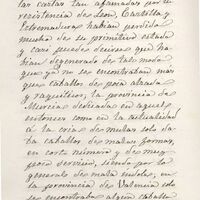 las castas tan afamadas por su
resistencia de Leon, Castilla y
Estremadura habian perdido
mucho de su primitivo estado
y casi puede decirse que ha
bian degenerado de tal modo
que ya no se encontraban mas
que caballos de poca alzada
y raquiticos la provincia de
Murcia dedicada en aquel
entonces como en la actualidad
á la cria de mulas solo da
ba caballos de malas formas,
en corto número y de muy
poco servicio, siendo por lo
general de mala indole, en
la provincia de Valencia solo
se encontraba algun caballo